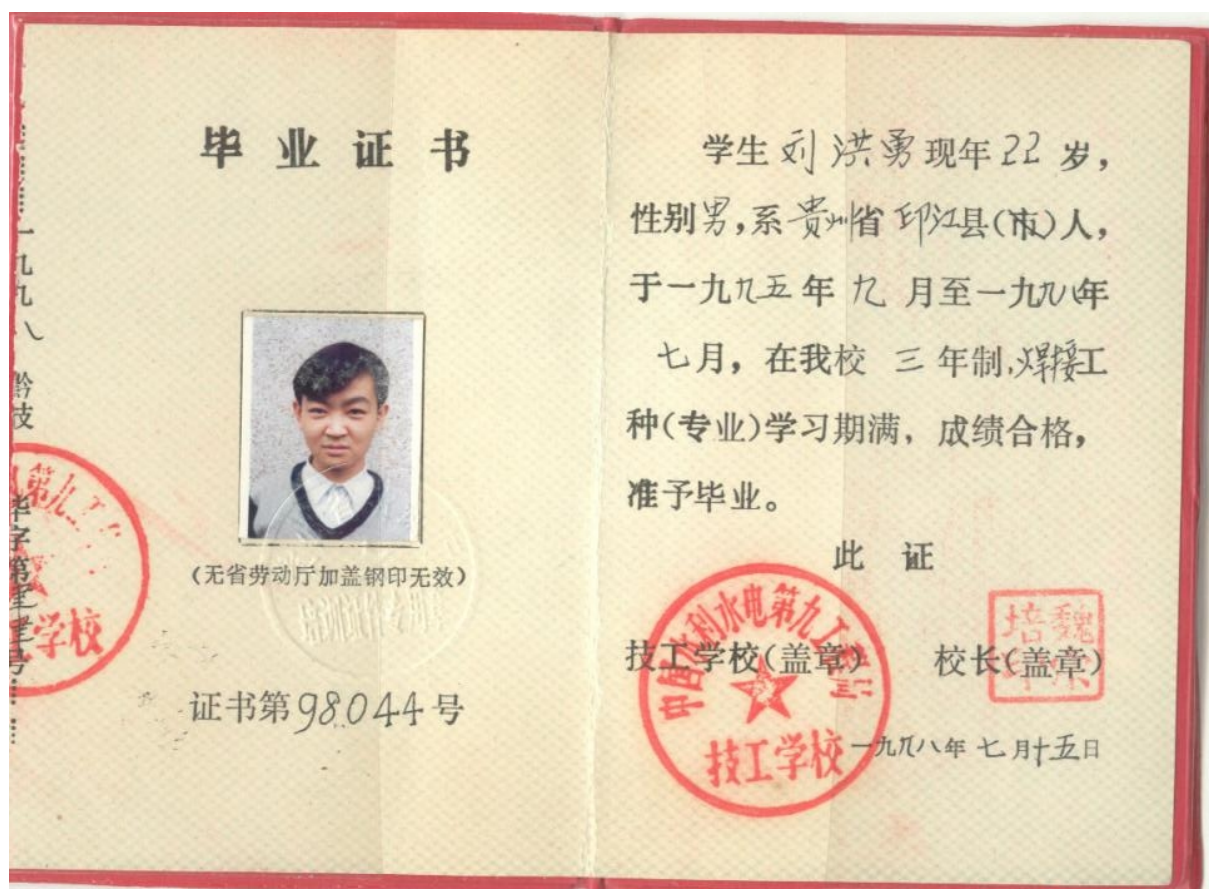 毕业证书
(无省劳动厅加盖钢印无效)
证书第98044号
一九九八
黔技
毕字第
号
第九工
学校
学生刘洪勇现年22岁，
性别男，系贵州省印江县(市)人，
于一九九五年九月至一九九八年
七月，在我校三年制，焊接工
种(专业)学习期满，成绩合格，
准予毕业。
此证
技工学校(盖章) 校长(盖章)
中国水利水电第九工程局
技工学校
魏
培
印
一九九八年七月十五日